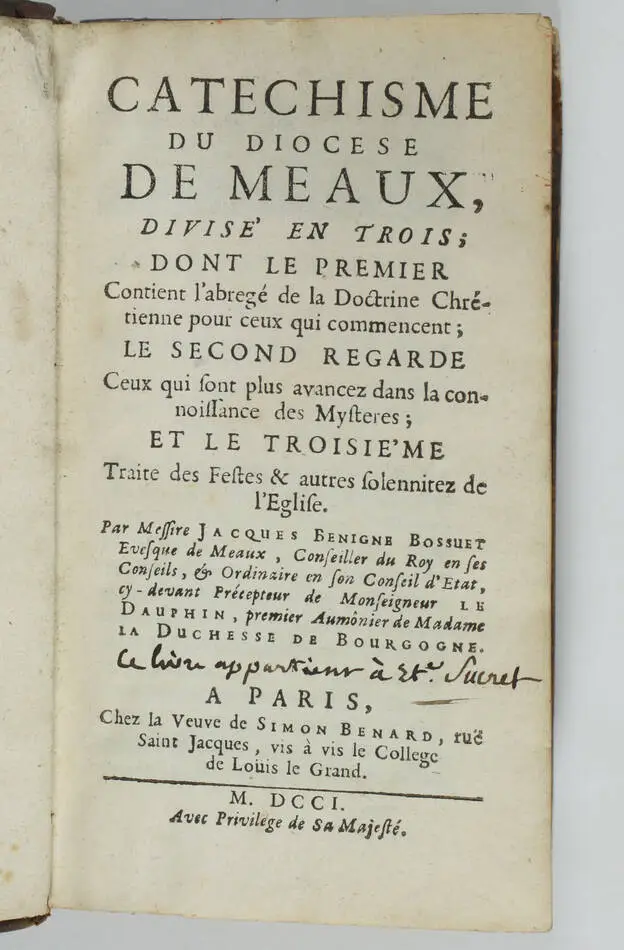 CATECHISME
DU DIOCESE
DE MEAUX,
DIVISE' EN TROIS;
DONT LE PREMIER
Contient l'abregé de la Doctrine Chré-
tienne pour ceux qui commencent;
LE SECOND REGARDE
Ceux qui ſont plus avancez dans la con-
noiſſance des Myſteres;
ET LE TROISIE'ME
Traite des Feſtes & autres ſolennitez de
l'Egliſe.
Par Meſſire JACQUES BENIGNE BOSSUET
Eveſque de Meaux, Conſeiller du Roy en ſes
Conſeils, & Ordinaire en ſon Conſeil d'Etat,
cy-devant Précepteur de Monſeigneur LE
DAUPHIN, premier Aumônier de Madame
LA DUCHESSE DE BOURGOGNE.
Ce livre appartient à Et.e Sucret
A PARIS,
Chez la Veuve de SIMON BENARD, ruë
Saint Jacques, vis à vis le College
de Loüis le Grand.
M. DCCI.
Avec Privilege de Sa Majeſté.